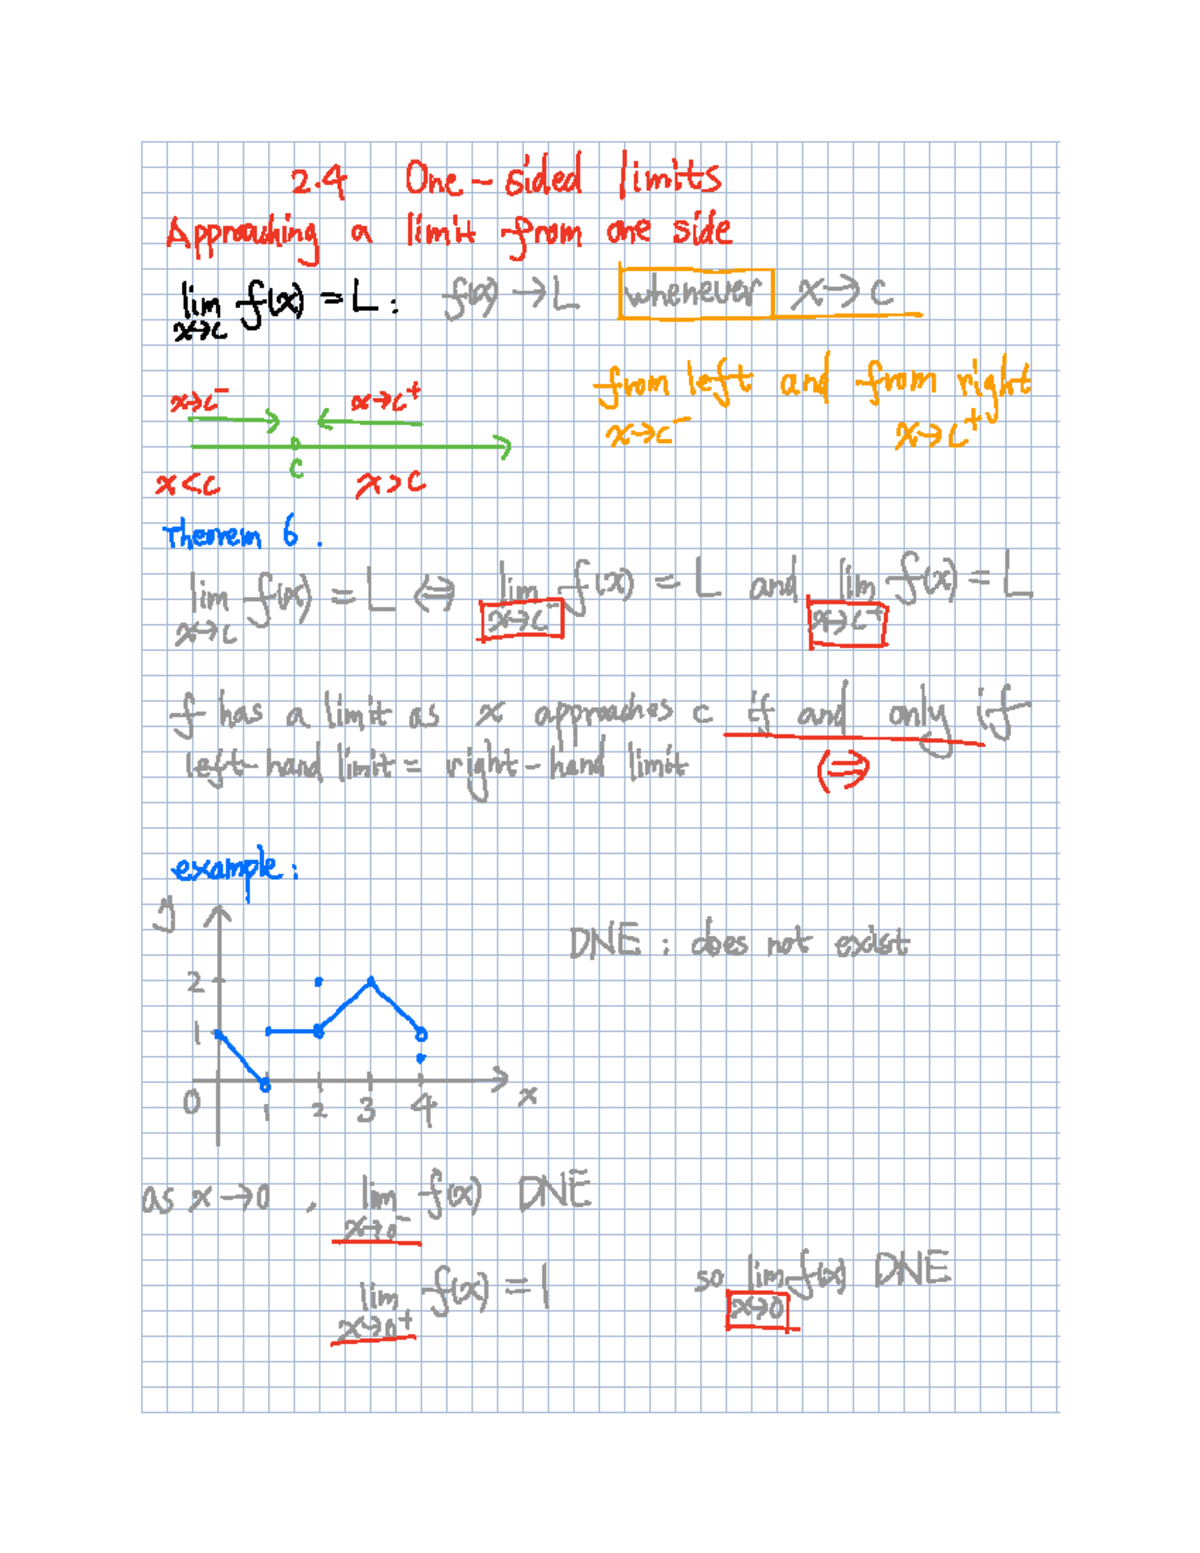 2.4 One-sided limits
Approaching a limit from one side
lim x→c f(x) = L : f(x) → L whenever x → c
from left and from right
x→c⁻ x→c⁺
x→c⁻ x→c⁺
c
x<c x>c
Theorem 6.
lim x→c f(x) = L ⟺ lim x→c⁻ f(x) = L and lim x→c⁺ f(x) = L
f has a limit as x approaches c if and only if
left-hand limit = right-hand limit (⟹)
example:
y
DNE : does not exist
2
1
0 1 2 3 4 x
as x→0, lim x→0⁻ f(x) DNE
lim x→0⁺ f(x) = 1 so lim x→0 f(x) DNE